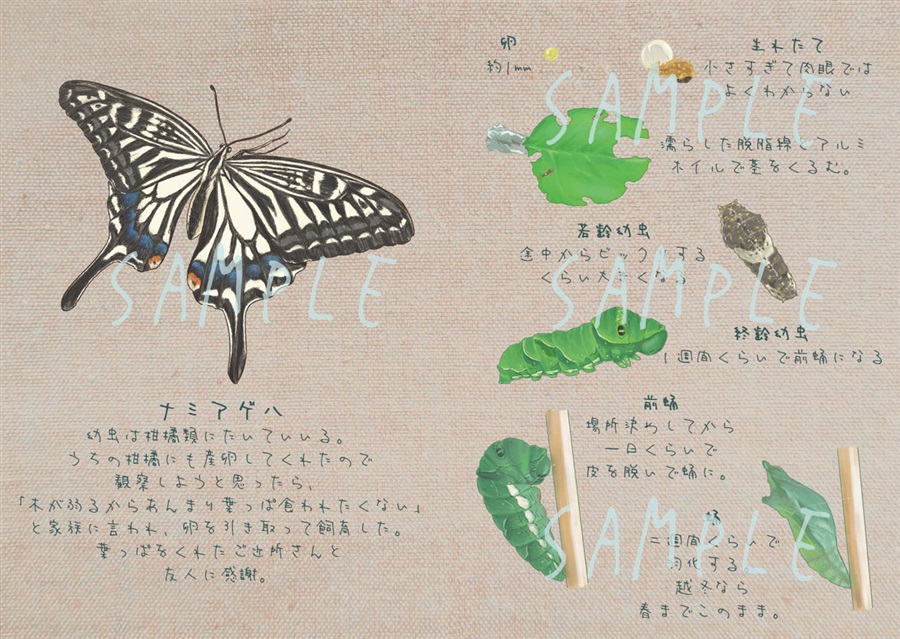 ナミアゲハ
幼虫は柑橘類にたいていいる。
うちの柑橘にも産卵してくれたので
観察しようと思ったら、
「木が弱るからあんまり葉っぱ食われたくない」
と家族に言われ、卵を引き取って飼育した。
葉っぱをくれたご近所さんと
友人に感謝。
卵
約1mm
生れたて
小さすぎて肉眼では
よくわからない
濡らした脱脂線とアルミ
ホイルで茎をくるむ。
若齢幼虫
途中からビックリする
くらい大きくなる
終齢幼虫
1週間くらいで前蛹になる
前蛹
場所決めしてから
一日くらいで
皮を脱いで蛹に。
蛹
二週間くらいで
羽化する
越冬なら
春までこのまま。
SAMPLE
SAMPLE
SAMPLE
SAMPLE